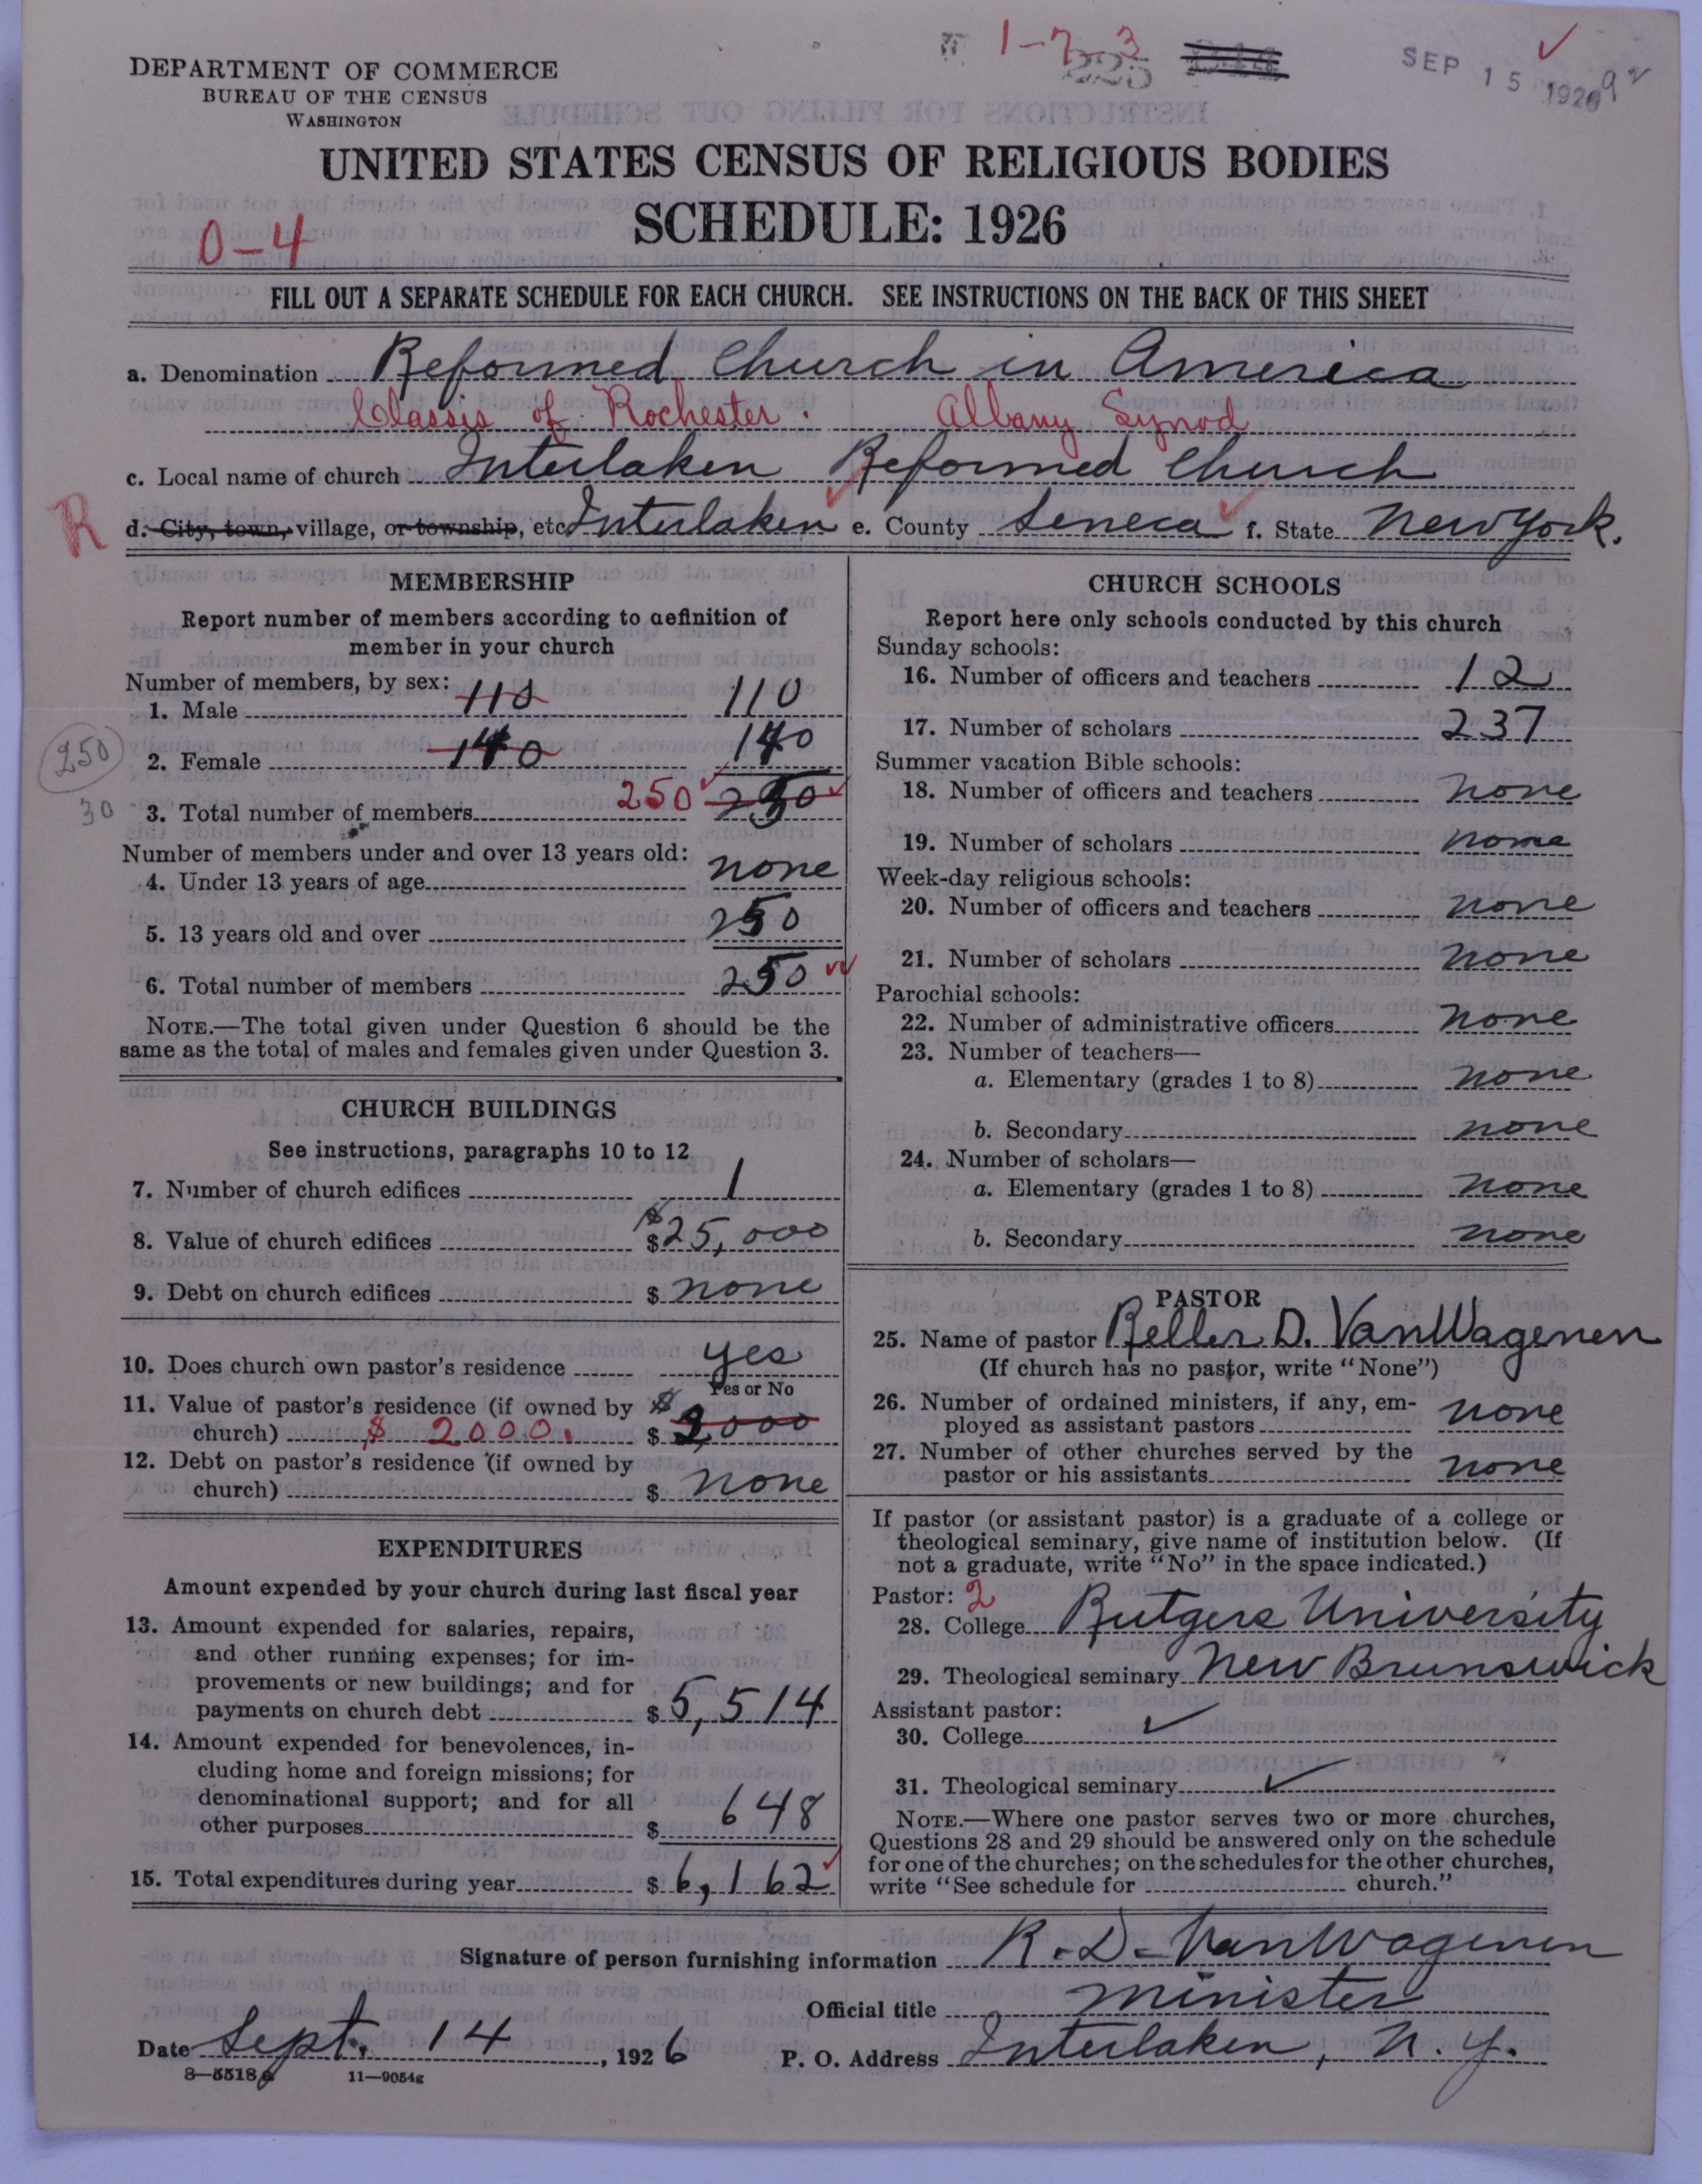 1-7-3
225
SEP 15 1926
DEPARTMENT OF COMMERCE
BUREAU OF THE CENSUS
WASHINGTON
UNITED STATES CENSUS OF RELIGIOUS BODIES
SCHEDULE: 1926
0-4
FILL OUT A SEPARATE SCHEDULE FOR EACH CHURCH. SEE INSTRUCTIONS ON THE BACK OF THIS SHEET
a. Denomination Reformed Church in America
Classis of Rochester. Albany Synod
c. Local name of church Interlaken Reformed Church
R
d. City, town, village, or township, etc. Interlaken e. County Seneca f. State New York.
MEMBERSHIP
Report number of members according to definition of
member in your church
Number of members, by sex:
1. Male 110 110
2. Female 140 140
250
3. Total number of members 250 250
30
Number of members under and over 13 years old:
4. Under 13 years of age none
5. 13 years old and over 250
6. Total number of members 250
NOTE.—The total given under Question 6 should be the
same as the total of males and females given under Question 3.
CHURCH BUILDINGS
See instructions, paragraphs 10 to 12
7. Number of church edifices 1
8. Value of church edifices $ $25,000
9. Debt on church edifices $ none
10. Does church own pastor's residence yes
Yes or No
11. Value of pastor's residence (if owned by $
church) $ 2000. $ 2000
12. Debt on pastor's residence (if owned by
church) $ none
EXPENDITURES
Amount expended by your church during last fiscal year
13. Amount expended for salaries, repairs,
and other running expenses; for im-
provements or new buildings; and for
payments on church debt $ 5,514
14. Amount expended for benevolences, in-
cluding home and foreign missions; for
denominational support; and for all
other purposes $ 648
15. Total expenditures during year $ 6,162
CHURCH SCHOOLS
Report here only schools conducted by this church
Sunday schools:
16. Number of officers and teachers 12
17. Number of scholars 237
Summer vacation Bible schools:
18. Number of officers and teachers none
19. Number of scholars none
Week-day religious schools:
20. Number of officers and teachers none
21. Number of scholars none
Parochial schools:
22. Number of administrative officers none
23. Number of teachers—
a. Elementary (grades 1 to 8) none
b. Secondary none
24. Number of scholars—
a. Elementary (grades 1 to 8) none
b. Secondary none
PASTOR
25. Name of pastor D. VanWagenen
(If church has no pastor, write "None")
26. Number of ordained ministers, if any, em-
ployed as assistant pastors none
27. Number of other churches served by the
pastor or his assistants none
If pastor (or assistant pastor) is a graduate of a college or
theological seminary, give name of institution below. (If
not a graduate, write "No" in the space indicated.)
Pastor: 2
28. College Rutgers University
29. Theological seminary New Brunswick
Assistant pastor:
30. College ✓
31. Theological seminary ✓
NOTE.—Where one pastor serves two or more churches,
Questions 28 and 29 should be answered only on the schedule
for one of the churches; on the schedules for the other churches,
write "See schedule for church."
Signature of person furnishing information R. D. VanWagenen
Official title Minister
Date Sept. 14, 1926 P. O. Address Interlaken, N. Y.
8—5518 11—9054g